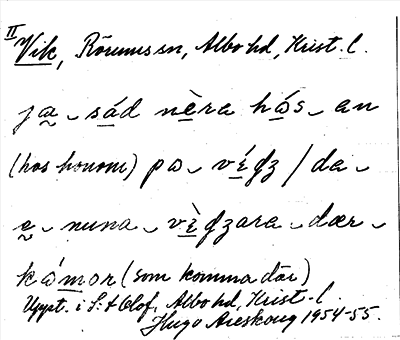 II
Vik, Rörums sn, Albo hd, Krist. l.
ja sád nèra hós an
(hos honom) pa véɡz / da
a nuna vèɡzara dær
kámor (som komma där)
Uppt. i S:t Olof, Albo hd, Krist. l.
Hugo Areskoug 1954-55.